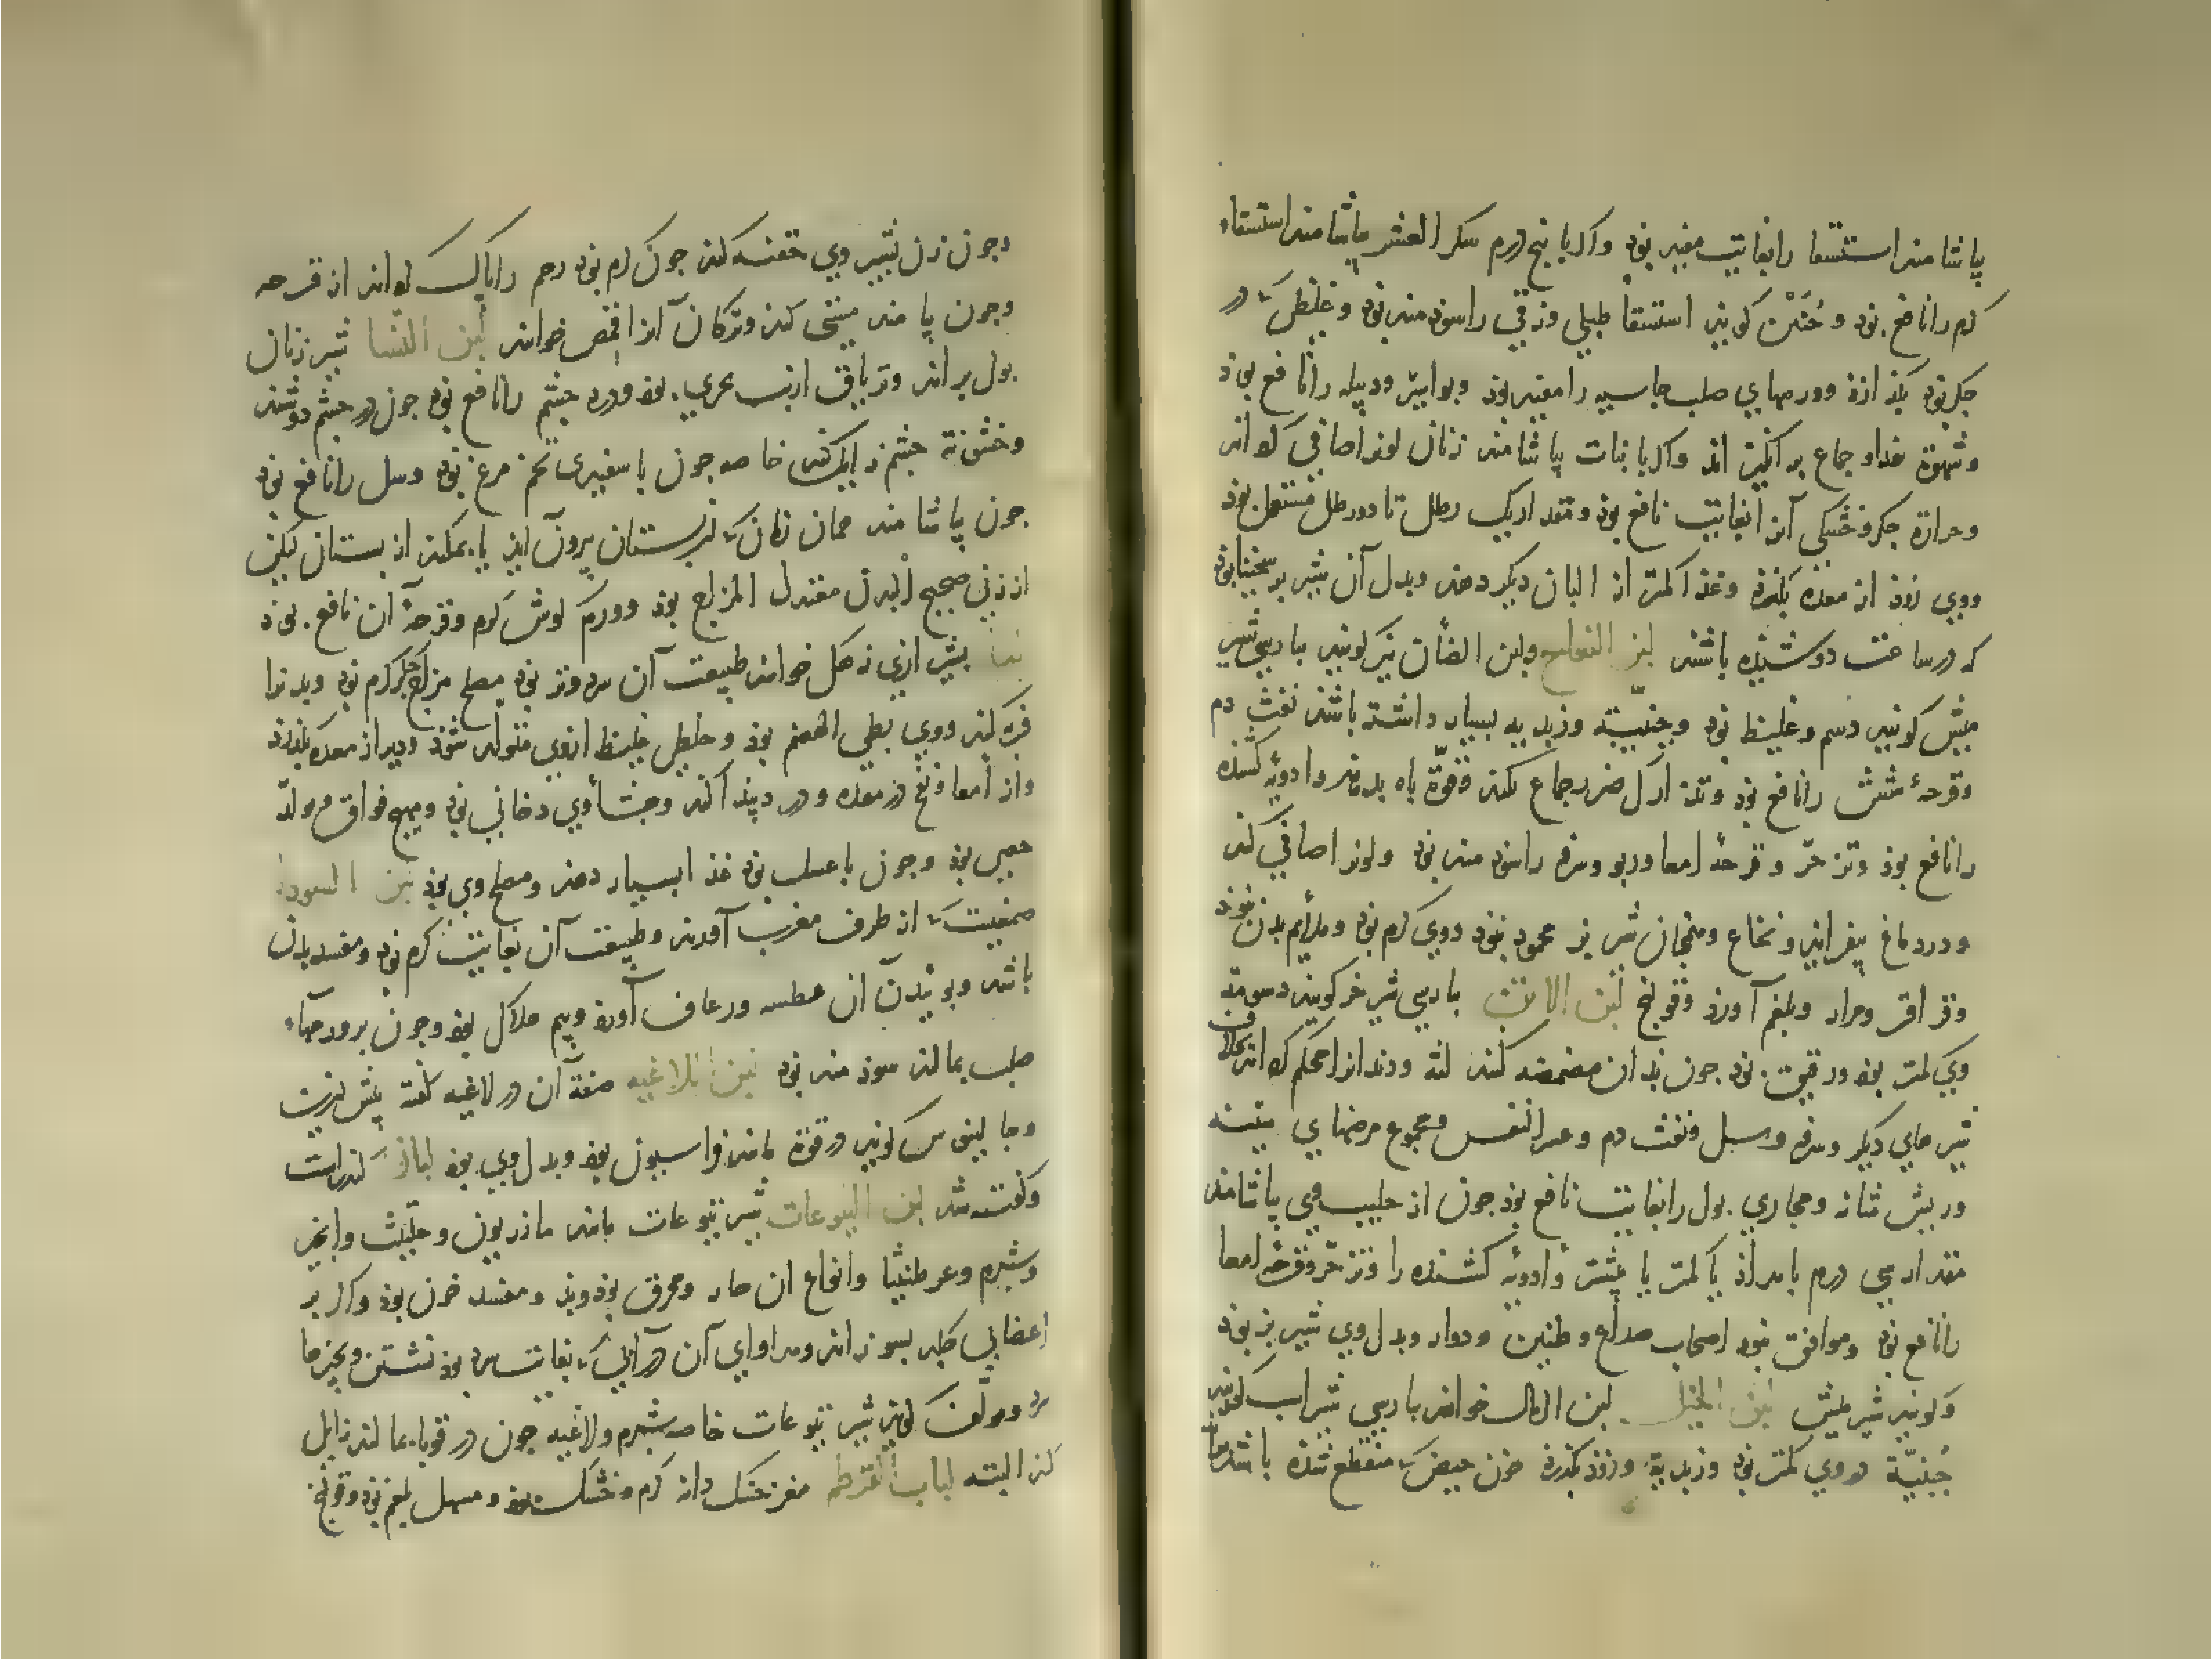 بیاشامند استسقا را بغایت مفید بود واکر با پنج درم سکر العشر بیاشامند استسقاء
کرم را نافع بود و حُنَین کوید استسقا طبلی وزقی را سودمند بود و غلظی که در
جکر بود بکدازد وورمهای صلب جاسیه را مفید بود وبواسیر ودبیله را نافع بود
وشهوة غذا وجماع برانکیزاند واکر با نبات بیاشامند زنان لون را صافی کرداند
وحرارة جکر وخشکی آن را بغایت نافع بود ومقدار یک رطل تا دو رطل مستعمل بود
ووی زود از معده بکذرد وغذا کمتر از البان دیکر دهد وبدل آن شیر بز
که در ساعت دوشیده باشند لبن النعاج ولبن الضأن نیز کویند بپارسی شیر
میش کویند دسم وغلیظ بود وجبنیة وزبدیه بسیار داشته باشد نفث دم
وقرحهٔ شش را نافع بود وتدارک ضرر جماع بکند وقوّة باه بدهد وادویهٔ کشنده
را نافع بود وتزحّر وقرحهٔ امعا وربو وسرفه را سودمند بود ولون را صافی کند
ودر دماغ بیفزاید ونخاع وهمچنان شیر بز محمود نبود ووی کرم بود وملایم بدن نبود
وقراقر ومرار وبلغم آورد وقولنج لبن الاتن بپارسی شیر خر کویند دسومة
وی کمتر بود ورقیق بود چون بدان مضمضه کنند لثه ودندان را محکم کرداند بخلاف
شیرهای دیکر وسرفه وسل ونفث دم وعسر النفس ومجموع مرضهای سینه
وریش مثانه ومجاری بول را بغایت نافع بود چون از حلیب وی بیاشامند
مقدار سی درم بامداد یا کمتر یا بیشتر وادویهٔ کشنده را وتزحّر وقرحهٔ امعا
را نافع بود وموافق نبود اصحاب صداع وطنین ودوار وبدل وی شیر بز بود
وکویند شیر میش لبن الخیل لبن الرماک خوانند بپارسی شیر اسب کویند
جُبنیّة در وی کمتر بود وزبدیة وزود بکذرد خون حیض که منقطع شده باشد براند
وچون زن بشیر وی حقنه کند چون کرم بود رحم را پاک کرداند از قرحه
وچون بیاشامند منتّی کند وترکان آن را قمص خوانند لبن النسا شیر زنان
بول براند وتریاق ارنب بحری بود ودرد چشم را نافع بود چون در چشم دوشند
وخشونة چشم زایل کند خاصه چون با سفیدی تخم مرغ بود وسل را نافع بود
چون بیاشامند همان زمان که از پستان بیرون آید یا بمکند از پستان لیکن
از زنی صحیح البدن معتدل المزاج بود وورم کوش کرم وقرحهٔ آن نافع بود
لبا بشیرازی زهکل خوانند طبیعت آن سرد وتر بود مصلح مزاج جکر کرم بود وبدن را
فربه کند ووی بطی الهضم بود وخلطی غلیظ از وی متولد شود ودیر از معده بکذرد
واز امعا ونفخ در معده ودرد پیدا کند وجشأ وی دخانی بود ومهیج فواق ومولّد
حصی بود وچون با عسل بود غذا بسیار دهد ومصلح وی بود لبن السودا
صمغیست که از طرف مغرب آورند وطبیعت آن بغایت کرم بود ومفسد بدن
باشد وبوییدن آن عطسه ورعاف آورد وبیم هلاک بود وچون بر ورمهاء
صلب بمالند سودمند بود لبن اللاغیه صفة آن در لاغیه کفته پیش ازین
وجالینوس کوید در قوة مانند فراسیون بود وبدل وی بود لبان کندر است
وکفته شد لبن الیتوعات شیر یتوعات مانند ماذریون وحلتیت وانجیر
وشبرم وعرطنیثا وانواع آن حار ومحرق بود وبد ومفسد خون بود واکر بر
اعضای جلد بسوزاند ومداوای آن در آبی که بغایت سرد بود نشستن وبچیزهای
سرد ومولّف کوید شیر یتوعات خاصه شبرم ولاغیه چون در قوبا بمالند زایل
کند البته لباب القرطم مغز خسک دانه کرم وخشک بود ومسهل بلغم بود وقولنج